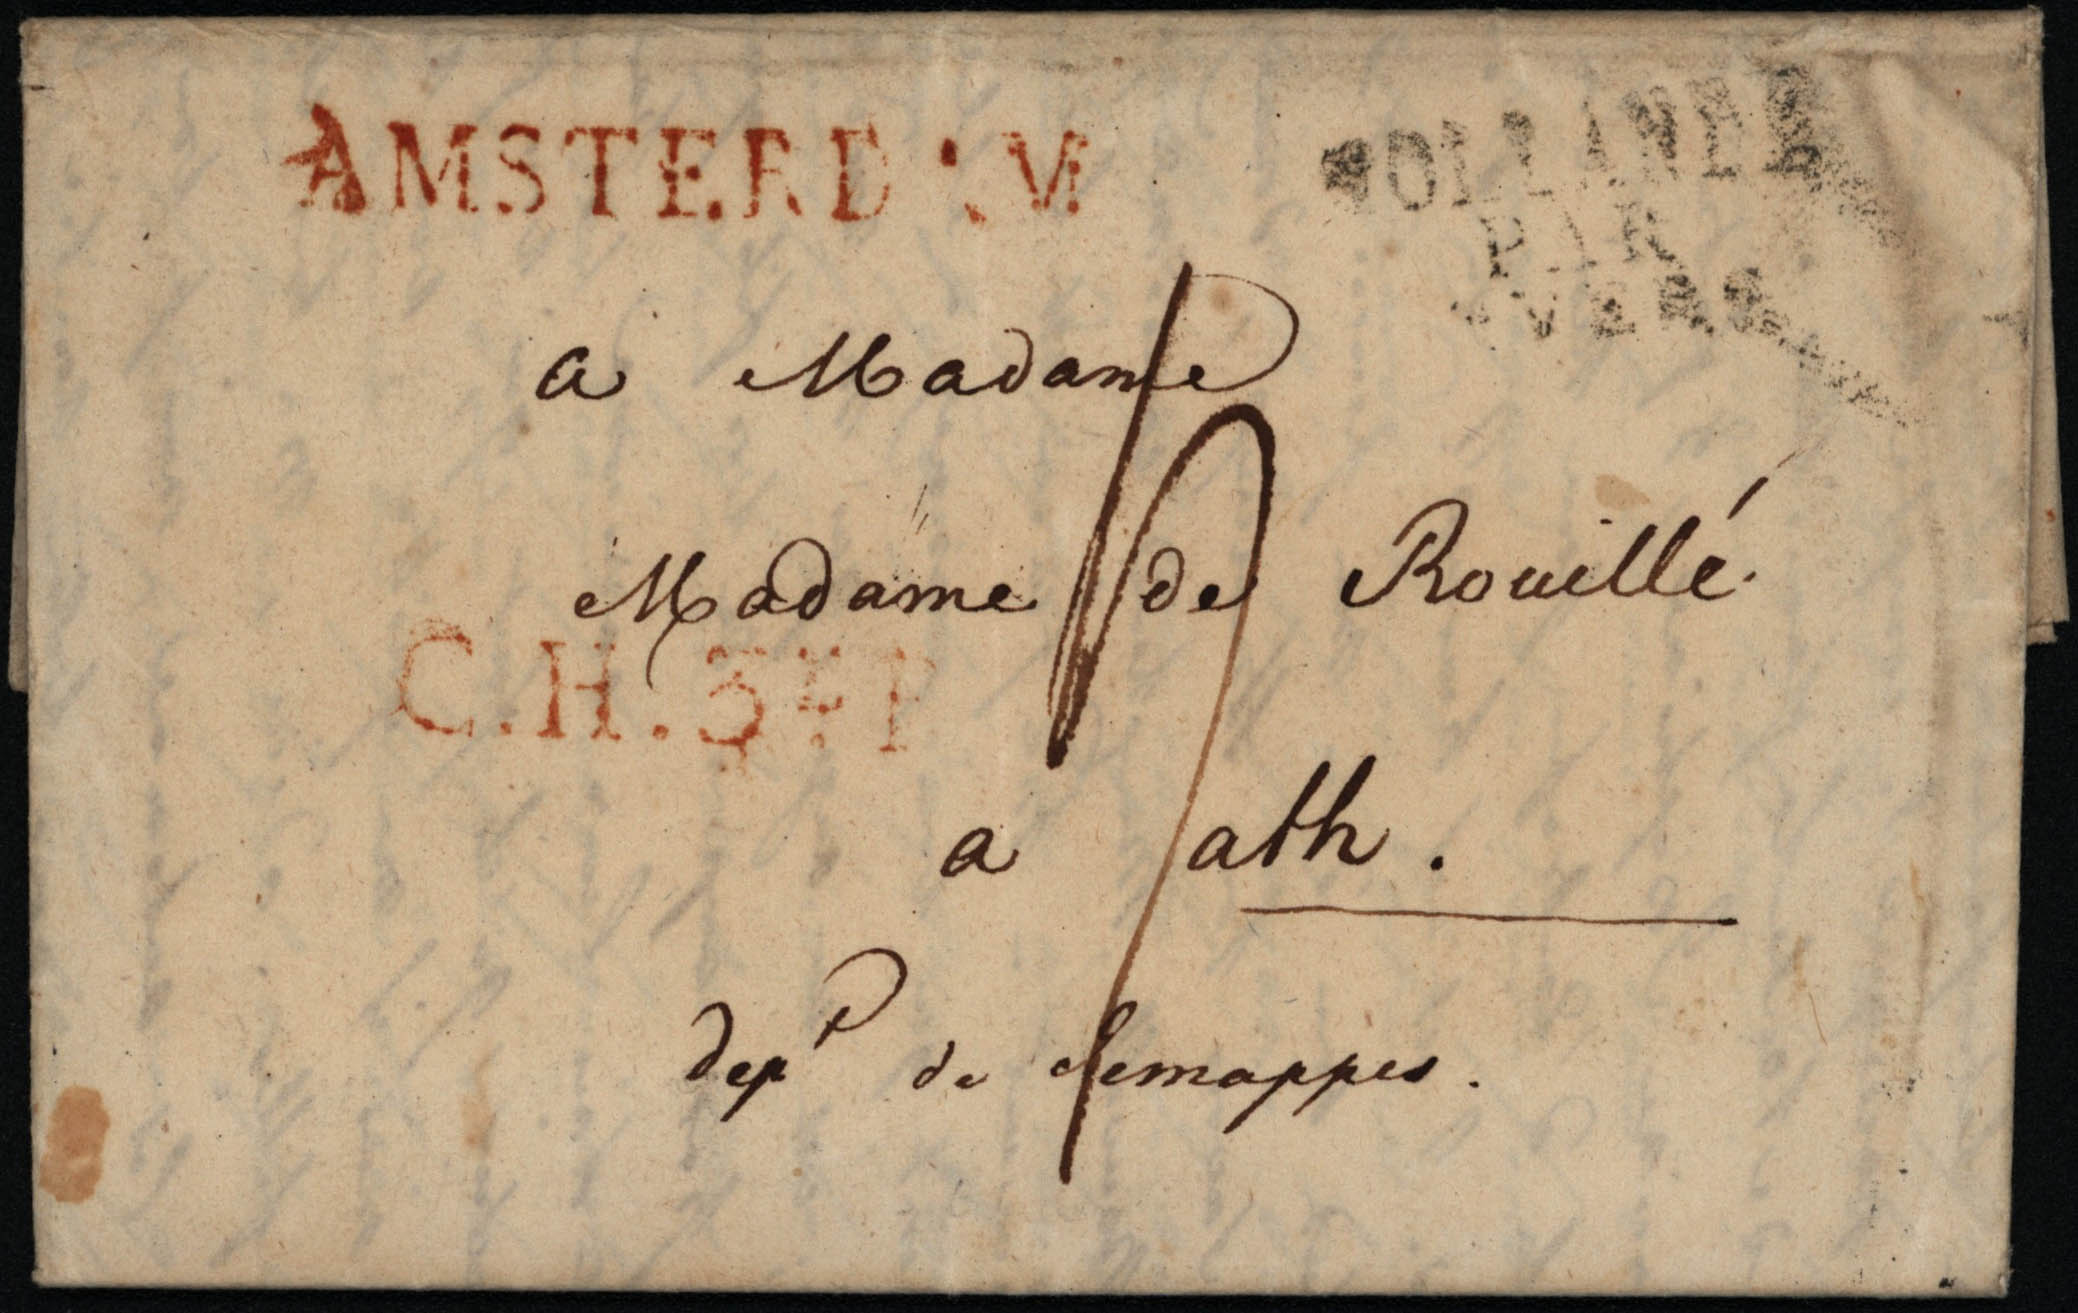 AMSTERDAM
HOLLANDE
PAR
NVERS
a Madame
Madame de Rouillé.
C.H.3e.P
a ath.
dept de Jemappes.